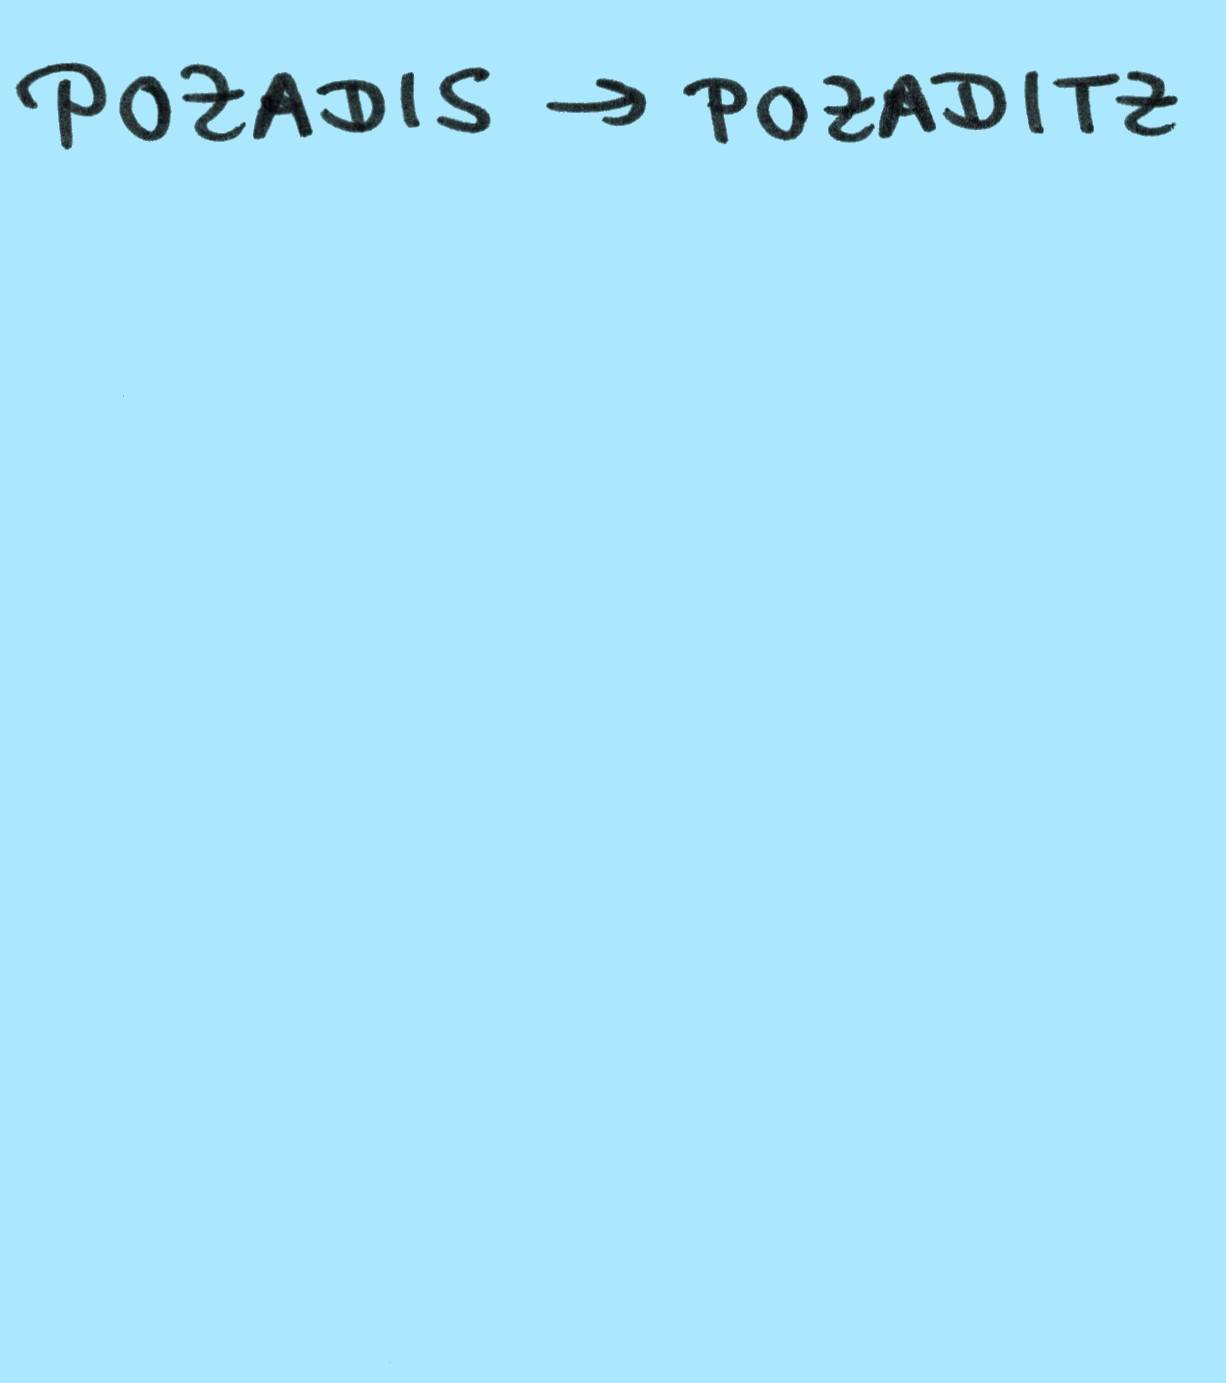 POZADIS → POZADITZ